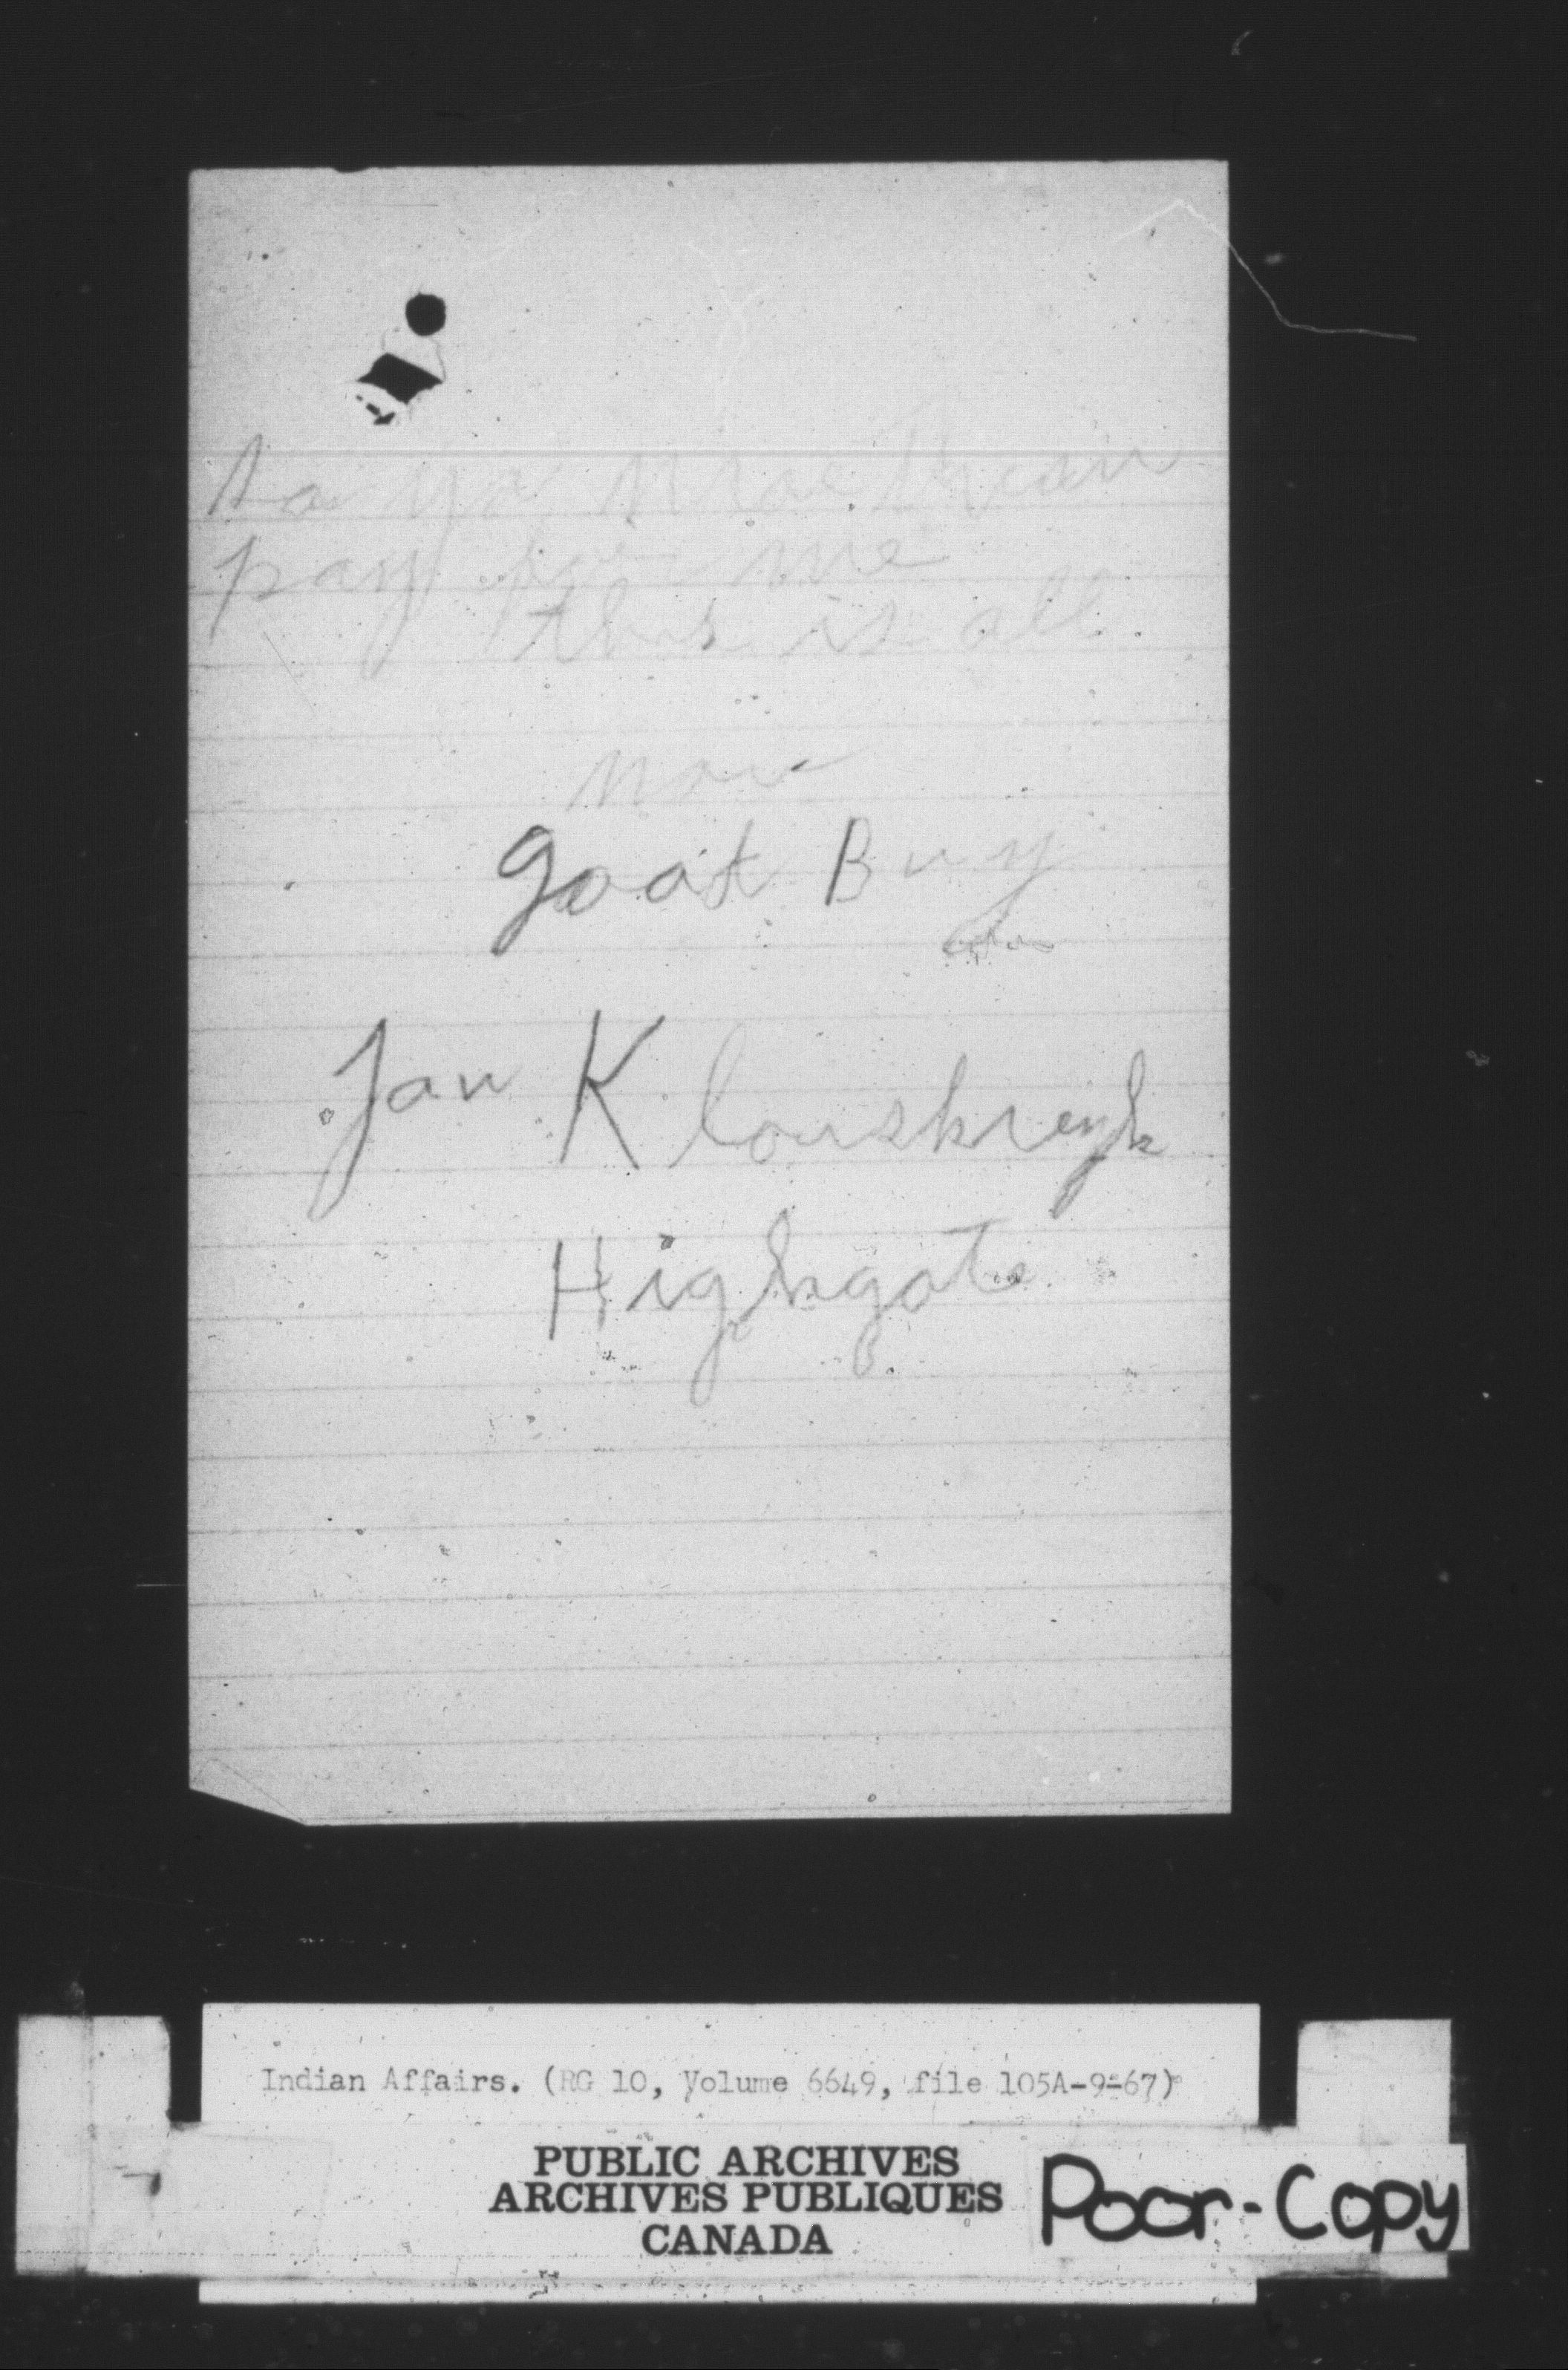 to
pay for me
this is all
now
goot Buy
Jan Klouskreyk
Highgate
Indian Affairs. (RG 10, Volume 6649, file 105A-9-67)
PUBLIC ARCHIVES
ARCHIVES PUBLIQUES
CANADA
Poor-Copy